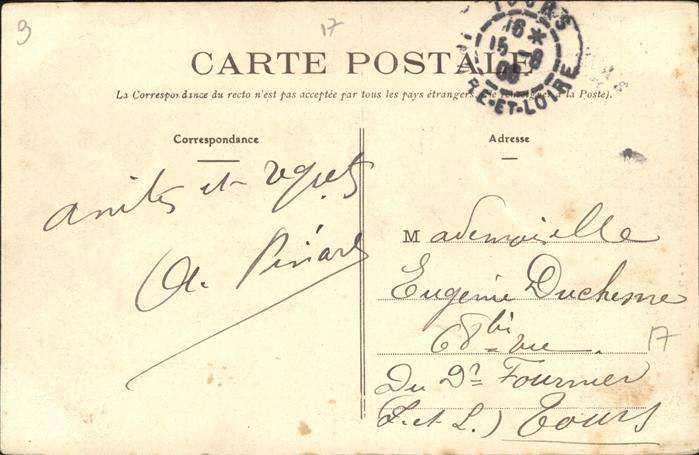 3
17
TOURS
16*
15-8
RE-ET-LOIRE
CARTE POSTALE
La Correspondance du recto n'est pas acceptée par tous les pays étrangers. (Se renseigner à la Poste).
Correspondance
Adresse
amitiés et
A. Pinard
Mademoiselle
Eugénie Duchesne
68 bis rue
17
Du Dr Fournier
(I. et L.) Tours